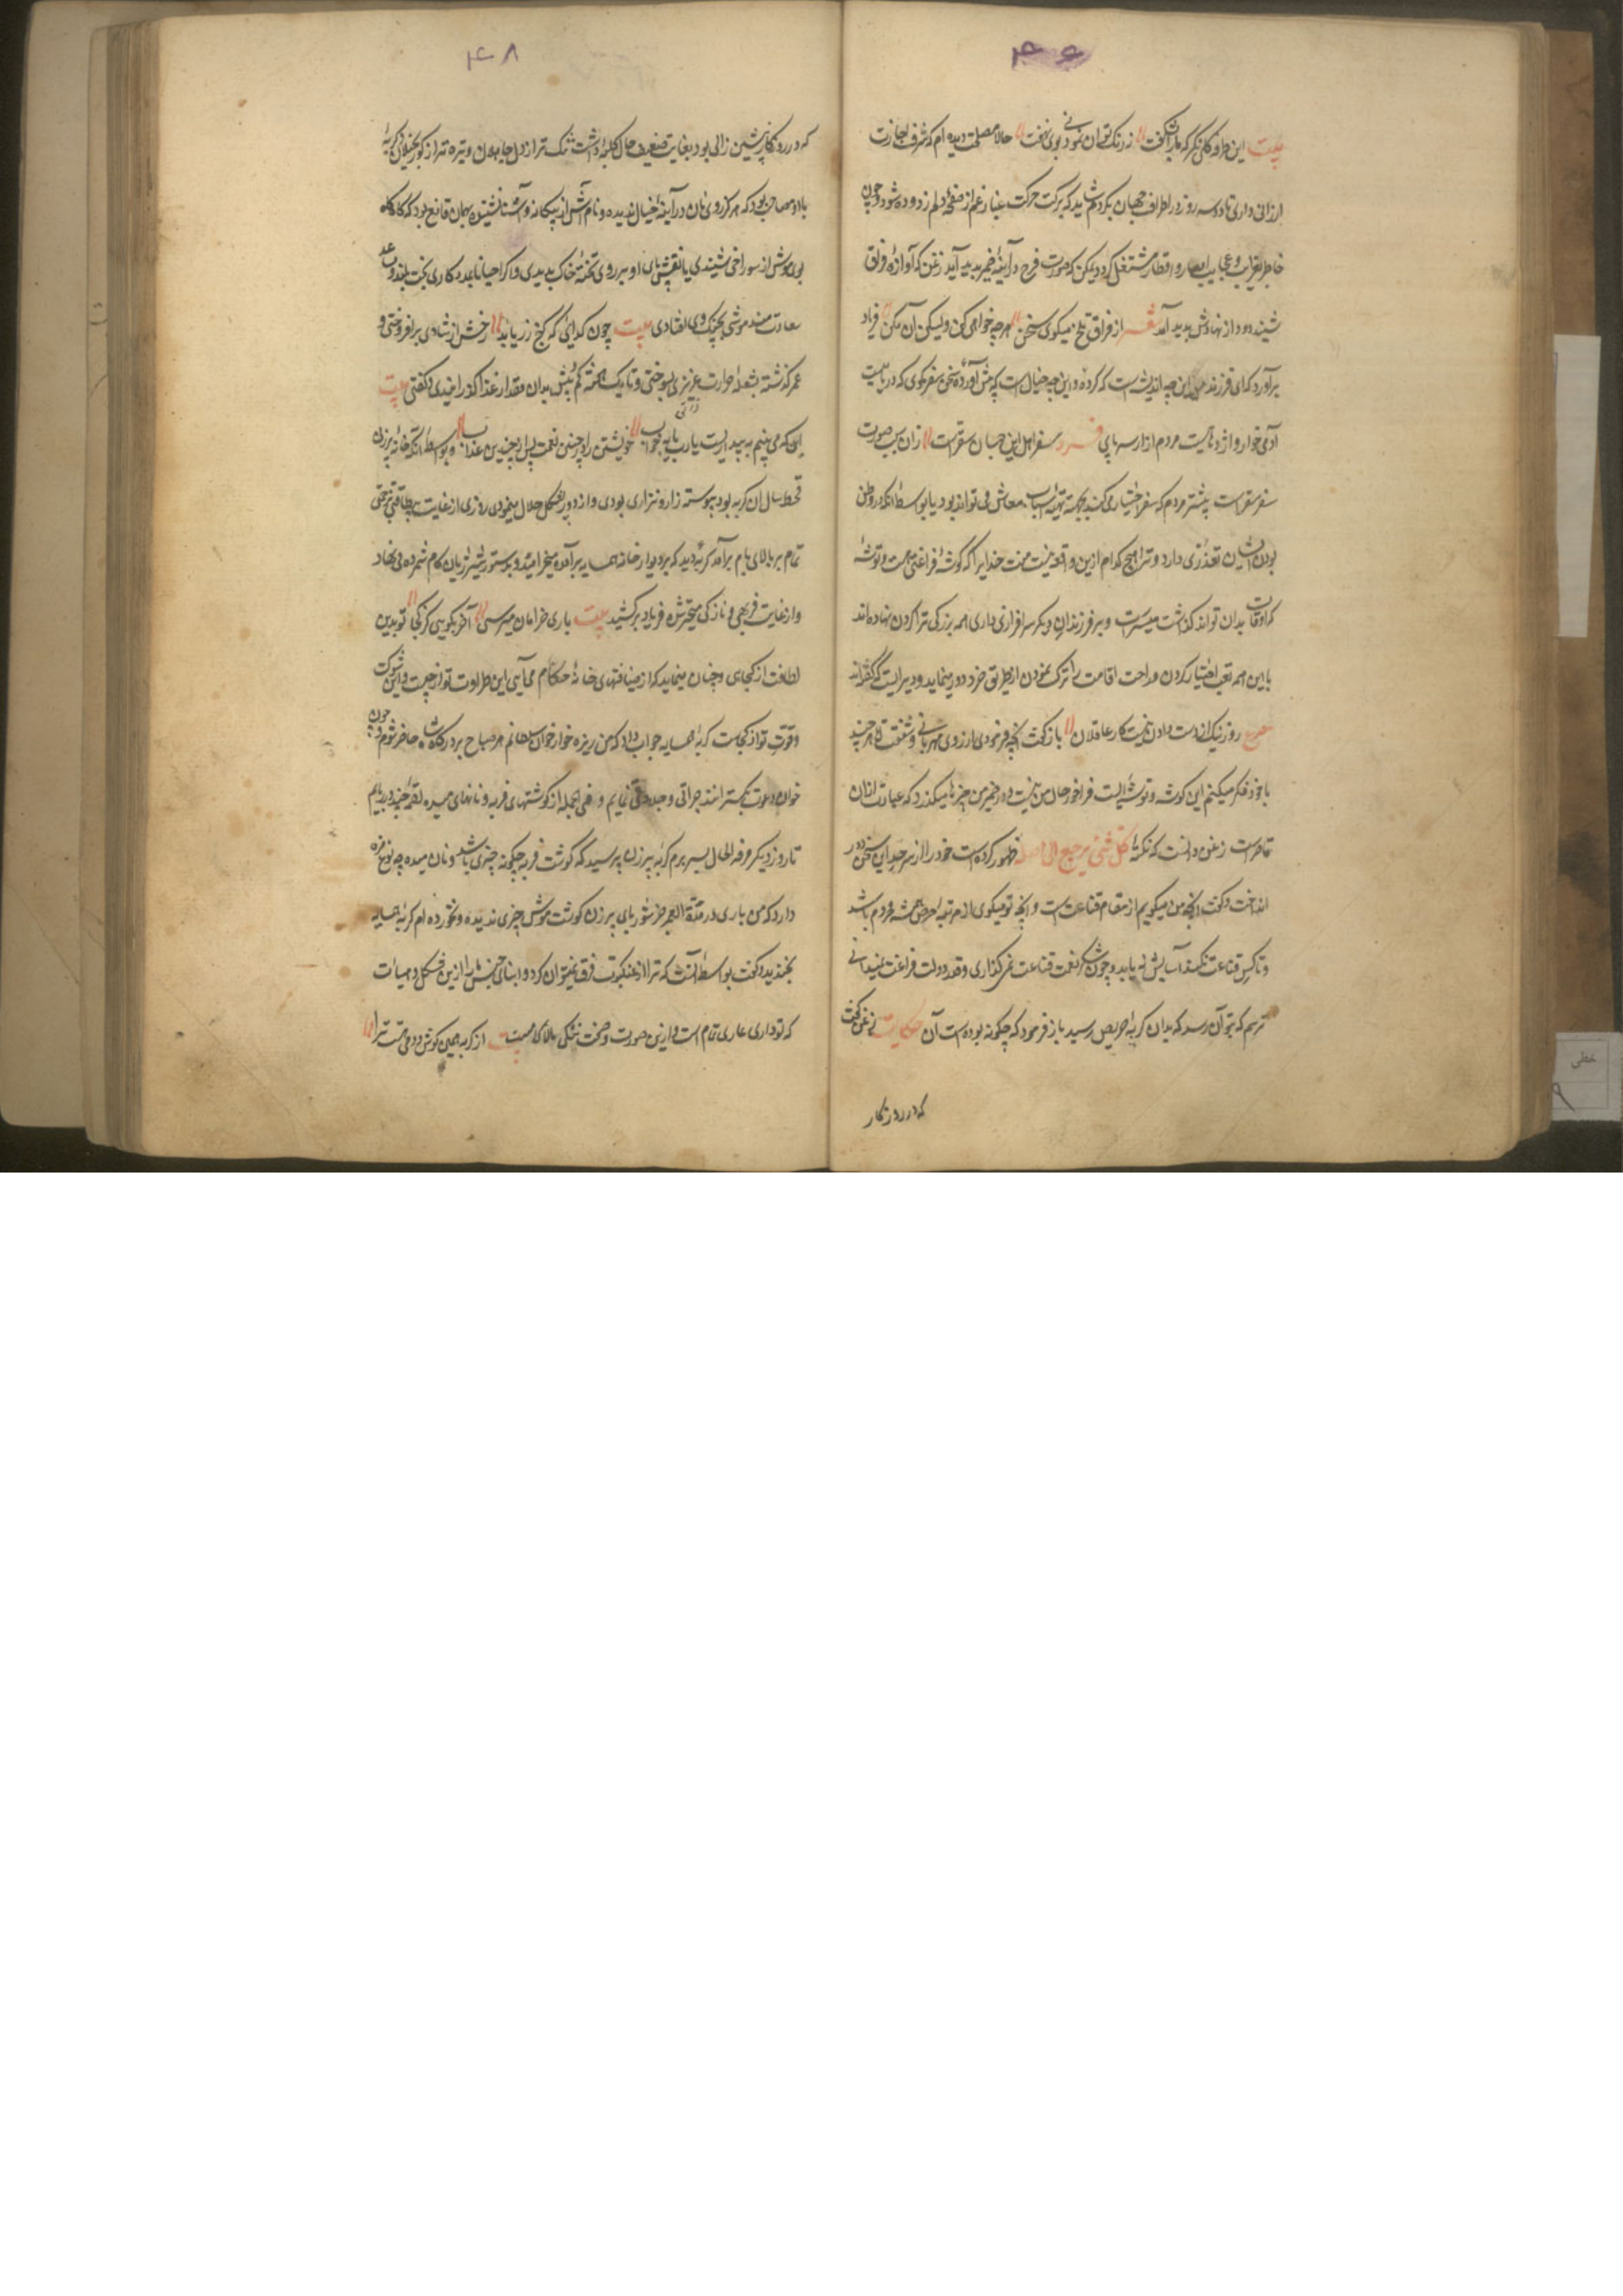 ۴۶
بیت این طرفه گلی نگر که ما را بشکفت نه رنگ توان نمود و نی بوی نهفت حالا مصلحت دیده ام که شرف اجازت
ارزانی داری تا دو سه روز در اطراف جهان بگردم شاید که ببرکت حرکت غبار غم از صفحه دلم زدوده شود و چون
خاطر بغرایب و عجایب امصار و اقطار مشتغل گردد یمکن که صورت فرح در آینه ضمیر پدید آید زغن که آوازه فراق
شنید دود از نهادش پدید آمد شعر از فراق تلخ میگوی سخن هر چه خواهی کن ولیکن آن مکن فریاد
برآورد که ای فرزند این چه اندیشه است که کرده و این چه خیال است که پیش آورده سخن سفر مگوی که دریائیست
آدمی خوار و اژدهائیست مردم از سر پای فرد سفر اهل این جهان سقرست زان سبب صورت
سفر سقر است بیشتر مردم که سفر اختیار می کنند بجهت تهیه اسباب معاش می تواند بود یا بواسطه آنکه در وطن
بودن ایشان تعذری دارد و ترا هیچ کدام ازین واقع نیست منت خدایرا که گوشه فراغتی هست و توشه
که اوقات بدان تواند گذشت میسرست و بر فرزندان دیگر سرافرازی داری همه بزرگی ترا گردن نهاده اند
با این همه تعب اختیار کردن و راحت اقامت را ترک نمودن از طریق خرد دور مینماید و دیر است که گفته اند
مصرع روز نیک از دست دادن نیست کار عاقلان باز گفت آنچه فرمودی از روی مهربانی و شفقت است هر چند
با خود فکر میکنم این گوشه و توشه ایست فراخور حال من نیست و در ضمیر من چیزها میگذرد که عبارت از آن
قاصر است زغن دانست که نکته کل شئ یرجع الی اصله ظهور کرده است خود را از سر حد این سخن دور
انداخت و گفت آنچه من میگویم از مقام قناعت است و آنچه تو میگوی از مرتبه حرص و حریص همیشه محروم باشد
و تا کس قناعت نکند آسایش نیابد و چون شکر نعمت قناعت نمی گذاری و قدر دولت فراغت نمیدانی
ترسم که بتو آن رسد که بدان گربه حریص رسید باز فرمود که چگونه بوده است آن حکایت زغن گفت
که در روزگار
۴۸
که در روزگار پیشین زالی بود بغایت ضعیف حال کلبه داشت تنگ تر از دل جاهلان و تیره تر از گور بخیلان و گربه
با او مصاحب بود که هرگز روی نان در آینه خیال ندیده و نام آش از بیگانه و آشنا نشنیده بهمان قانع بود که گاه گاه
بوی موش از سوراخی شنیدی یا نقش پای او بر روی تخته خاک بدیدی و اگر احیانا بمددکاری بخت بلند و مساعد
سعادت مند موشی بچنگ وی افتادی بیت چون گدایی که گنج زر یابد رخش از شادی برافروختی و
غم گذشته بشعله حرارت غریزی بسوختی و تا یک هفته کم و بیش بدان مقدار غذا گذرانیدی و گفتی بیت
این که می بینم به بیداریست یا رب یا به خواب خویشتن را در چنین نعمت پس از چندین عذاب و بواسطه آنکه خانه پیرزن
قحط سال آن گربه بود پیوسته زار و نزار بودی و از دور بشکل خلال مینمودی روزی از غایت بیطاقتی بزحمتی
تمام بر بالای بام برآمد گربه دید که بر دیوار خانه همسایه برآمده میخرامید و بدستور شیر ژیان گام شمرده می نهاد
و از غایت فربهی و نازکی متحیر شده فریاد برکشید بیت باری خرامان میرسی آخر بگویی کز کجا تو بدین
لطافت از کجایی و چنان مینماید که از ضیافتهای خانه خان می آیی این طراوت تو از چیست و این شوکت
و قوت تو از کجاست گربه همسایه جواب داد که من ریزه خوار خوان سلطانم هر صباح بر درگاه شاه حاضر شوم و چون
خوان دعوت بگسترانند جراتی و جلادتی نمایم و فی الجمله از گوشتهای فربه و نانهای میده لقمه چند در ربایم
تا روز دیگر مرفه الحال بسر برم گربه پیرزن پرسید که گوشت فربه چگونه چیزی باشد و نان میده چه نوع مزه
دارد که من باری در مدة العمر جز شوربای پیرزن و گوشت موش چیزی ندیده و نخورده ام گربه همسایه
بخندید و گفت بواسطه آنست که ترا از عنکبوت فرق نمیتوان کرد و ابنای جنس ما را ازین شکل و هیات
که تو داری عاری تمام است و ازین صورت و صفت ننگی بیت از گربه همین گوش و دمی هست ترا